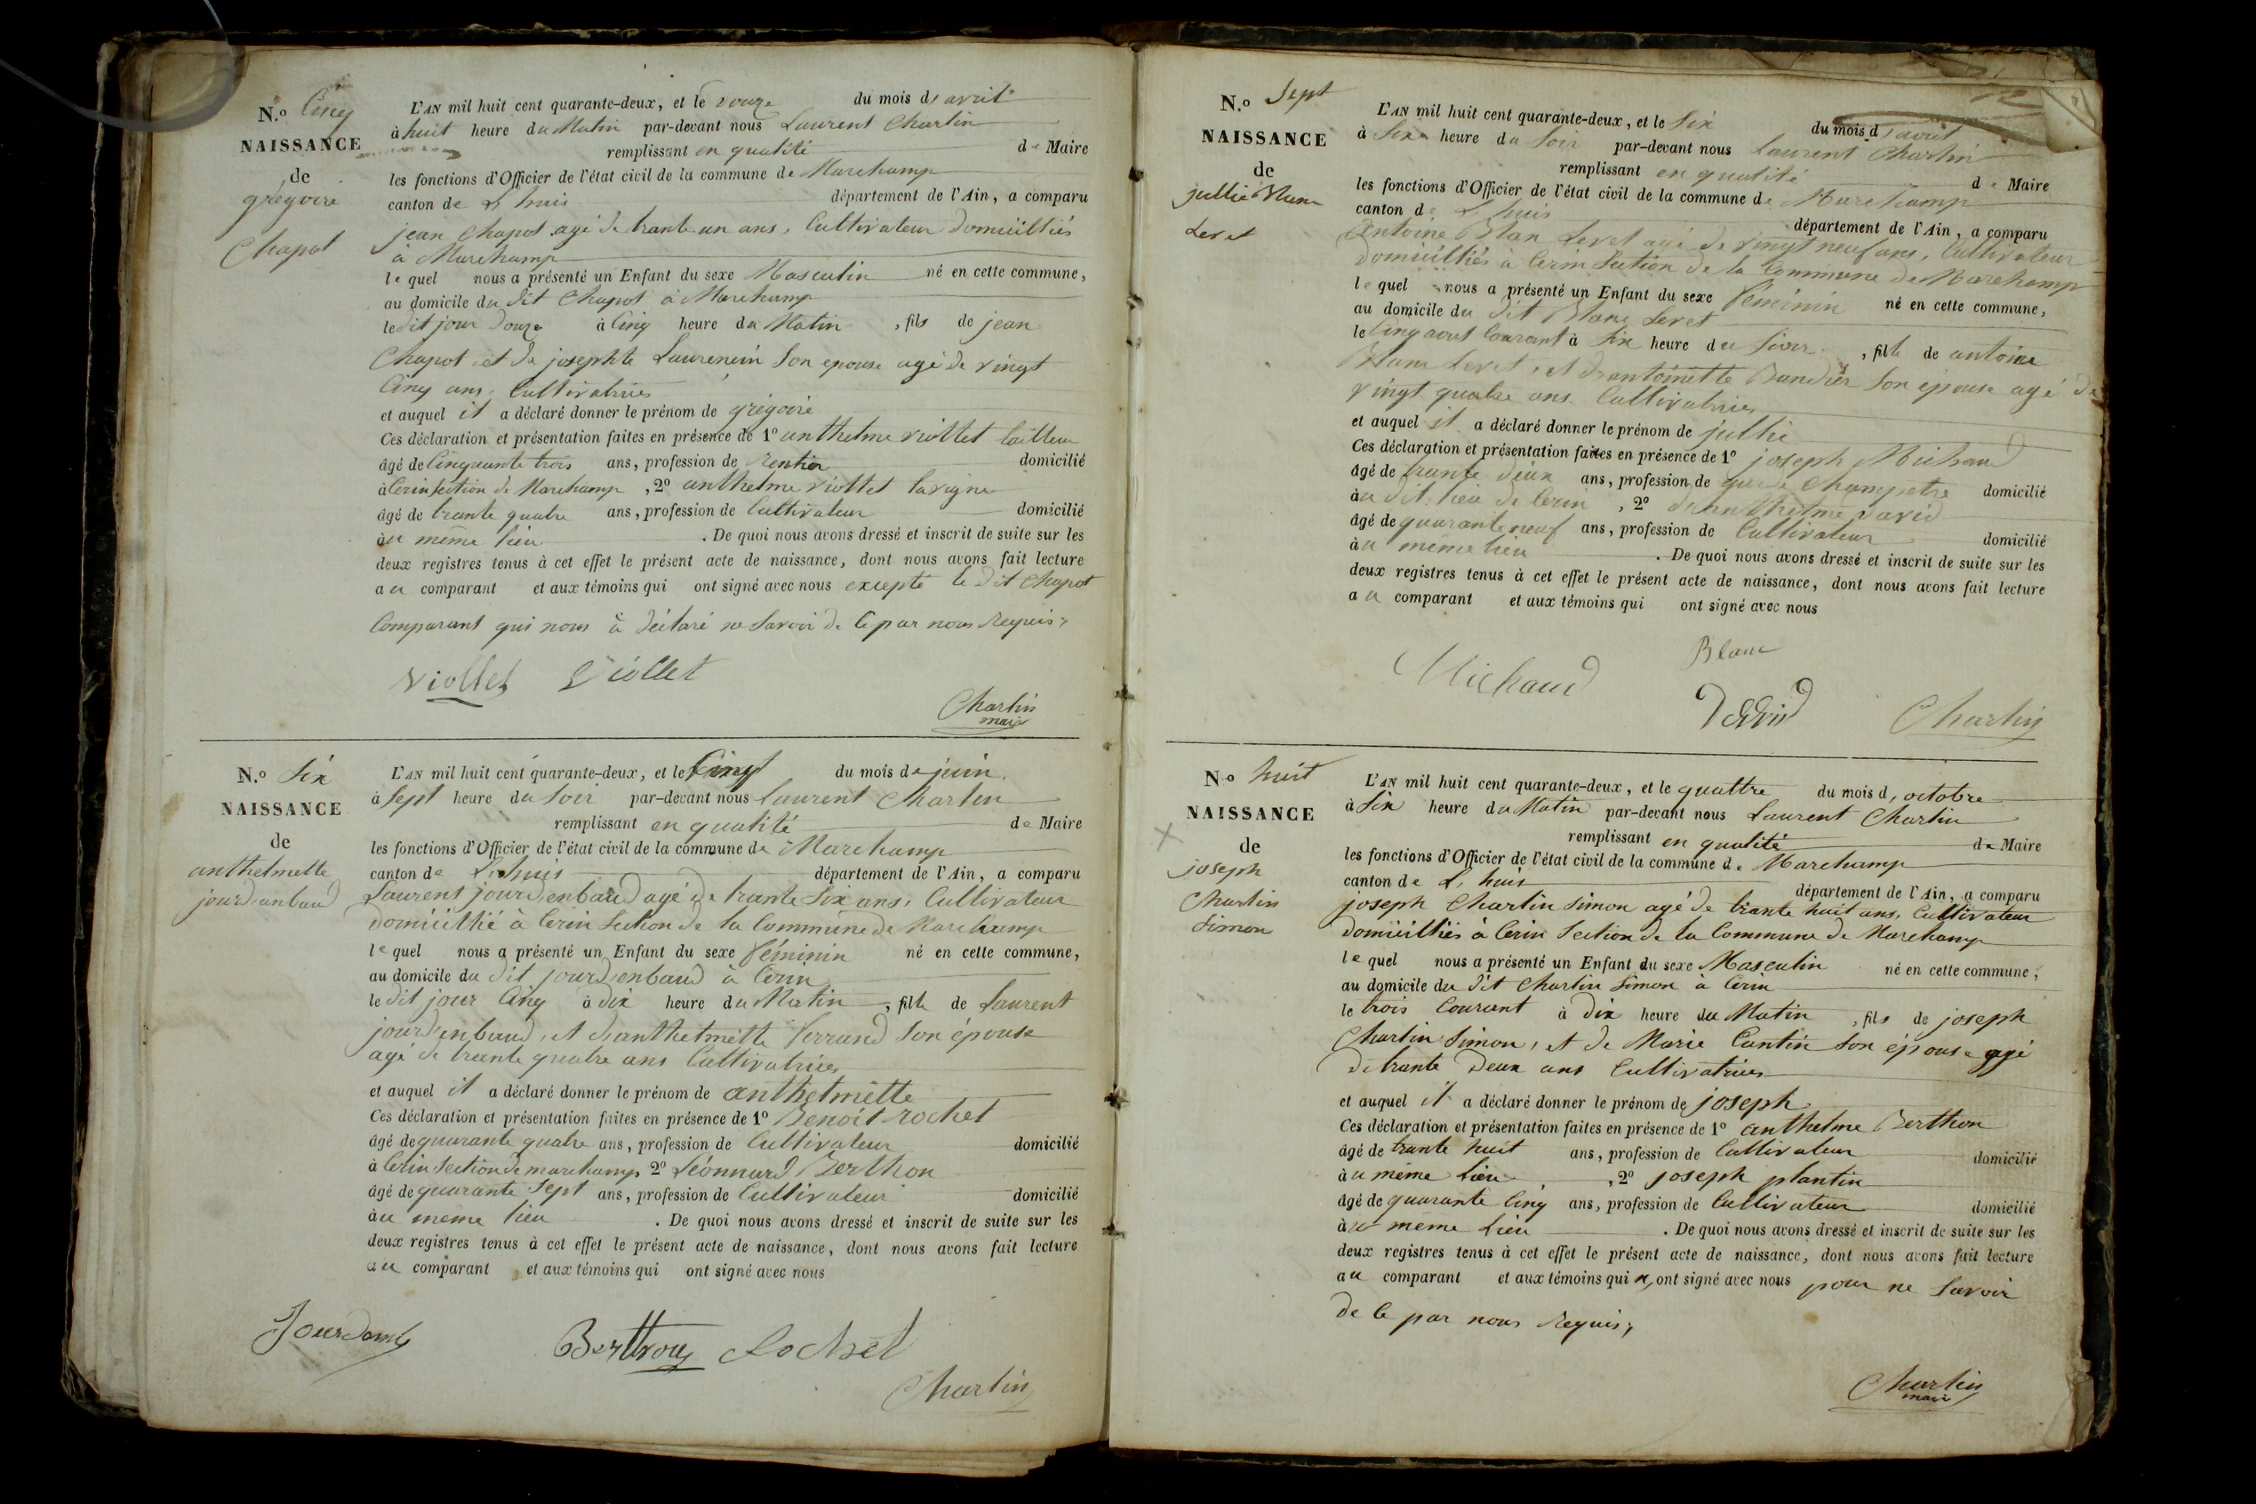 N.o Cinq
NAISSANCE
de
grégoire
Chapot
L'AN mil huit cent quarante-deux, et le douze du mois d'avril
à huit heure du Matin par-devant nous Laurent Charlin
remplissant en qualité de Maire
les fonctions d'Officier de l'état civil de la commune de Marchamp
canton de L'huis département de l'Ain, a comparu
jean Chapot agé de trante un ans, Cultivateur domicilliés
à Marchamp
lequel nous a présenté un Enfant du sexe Masculin né en cette commune,
au domicile du dit Chapot à Marchamp
le dit jour douze à Cinq heure du Matin, fils de jean
Chapot, et de josephte Laurencin Son epouse agé de vingt
Cinq ans, Cultivatrice
et auquel il a déclaré donner le prénom de grégoire
Ces déclaration et présentation faites en présence de 1o anthelme viollet tailleur
âgé de Cinquante trois ans, profession de Rentier domicilié
à Cerin Section de Marchamp, 2o anthelme viollet lavigne
âgé de trante quatre ans, profession de Cultivateur domicilié
àu même lieu. De quoi nous avons dressé et inscrit de suite sur les
deux registres tenus à cet effet le présent acte de naissance, dont nous avons fait lecture
au comparant et aux témoins qui ont signé avec nous excepté le dit Chapot
Comparant qui nous à déclaré ne Savoir de Ce par nous Requis,
viollet Viollet
Charlin
maire
N.o Six
NAISSANCE
de
anthelmette
jourdenbaud
L'AN mil huit cent quarante-deux, et le Cinq du mois de juin
à Sept heure du Soir par-devant nous Laurent Charlin
remplissant en qualité de Maire
les fonctions d'Officier de l'état civil de la commune de Marchamp
canton de L'huis département de l'Ain, a comparu
Laurent jourdenbaud agé de trante Six ans, Cultivateur
domicillié à Cerin Section de la Commune de Marchamp
lequel nous a présenté un Enfant du sexe féminin né en cette commune,
au domicile du dit jourdenbaud à Cerin
le dit jour Cinq à dix heure du Matin, fille de Laurent
jourdenbaud, et d'anthelmette ferrand Son épouse
agé de trante quatre ans Cultivatrice
et auquel il a déclaré donner le prénom de anthelmette
Ces déclaration et présentation faites en présence de 1o Benoit rochet
âgé de quarante quatre ans, profession de Cultivateur domicilié
à Cerin Section de marchamp 2o Léonnard Berthon
âgé de quarante Sept ans, profession de Cultivateur domicilié
àu meme lieu. De quoi nous avons dressé et inscrit de suite sur les
deux registres tenus à cet effet le présent acte de naissance, dont nous avons fait lecture
au comparant et aux témoins qui ont signé avec nous
Berthon Rochet
Charlin
N.o Sept
NAISSANCE
de
jullie Blanc
Levet
L'AN mil huit cent quarante-deux, et le Six du mois d'aout
à Six heure du Soir par-devant nous Laurent Charlin
remplissant en qualité de Maire
les fonctions d'Officier de l'état civil de la commune de Marchamp
canton de L'huis département de l'Ain, a comparu
antoine Blan Levet agé de vingt neuf ans, Cultivateur
domicilliés à Cerin Section de la Commune de Marchamp
lequel nous a présenté un Enfant du sexe féminin né en cette commune,
au domicile du dit Blanc Levet
le Cinq aout Courant à Six heure du Soir, fille de antoine
Blanc Levet, et d'antoinette Son épouse agé de
vingt quatre ans Cultivatrice
et auquel il a déclaré donner le prénom de jullie
Ces déclaration et présentation faites en présence de 1o joseph Michaud
âgé de trante deux ans, profession de garde Champetre domicilié
àu dit lieu de Cerin, 2o anthelme david
âgé de quarante neuf ans, profession de Cultivateur domicilié
àu même lieu. De quoi nous avons dressé et inscrit de suite sur les
deux registres tenus à cet effet le présent acte de naissance, dont nous avons fait lecture
au comparant et aux témoins qui ont signé avec nous
Blanc
Michaud David Charlin
N.o huit
NAISSANCE
de
joseph
Charlin
Simon
L'AN mil huit cent quarante-deux, et le quattre du mois d'octobre
à Six heure du Matin par-devant nous Laurent Charlin
remplissant en qualité de Maire
les fonctions d'Officier de l'état civil de la commune de Marchamp
canton de L'huis département de l'Ain, a comparu
joseph Charlin Simon agé de trante huit ans, Cultivateur
domicilliés à Cerin Section de la Commune de Marchamp
lequel nous a présenté un Enfant du sexe Masculin né en cette commune,
au domicile du dit Charlin Simon à Cerin
le trois Courant à dix heure du Matin, fils de joseph
Charlin Simon, et de Marie Cantin Son épouse agé
de trante deux ans Cultivatrice
et auquel il a déclaré donner le prénom de joseph
Ces déclaration et présentation faites en présence de 1o anthelme Berthon
âgé de trante huit ans, profession de Cultivateur domicilié
àu même Lieu, 2o joseph plantin
âgé de quarante Cinq ans, profession de Cultivateur domicilié
àu meme Lieu. De quoi nous avons dressé et inscrit de suite sur les
deux registres tenus à cet effet le présent acte de naissance, dont nous avons fait lecture
au comparant et aux témoins qui n'ont signé avec nous pour ne Savoir
de Ce par nous Requis,
Charlin
maire